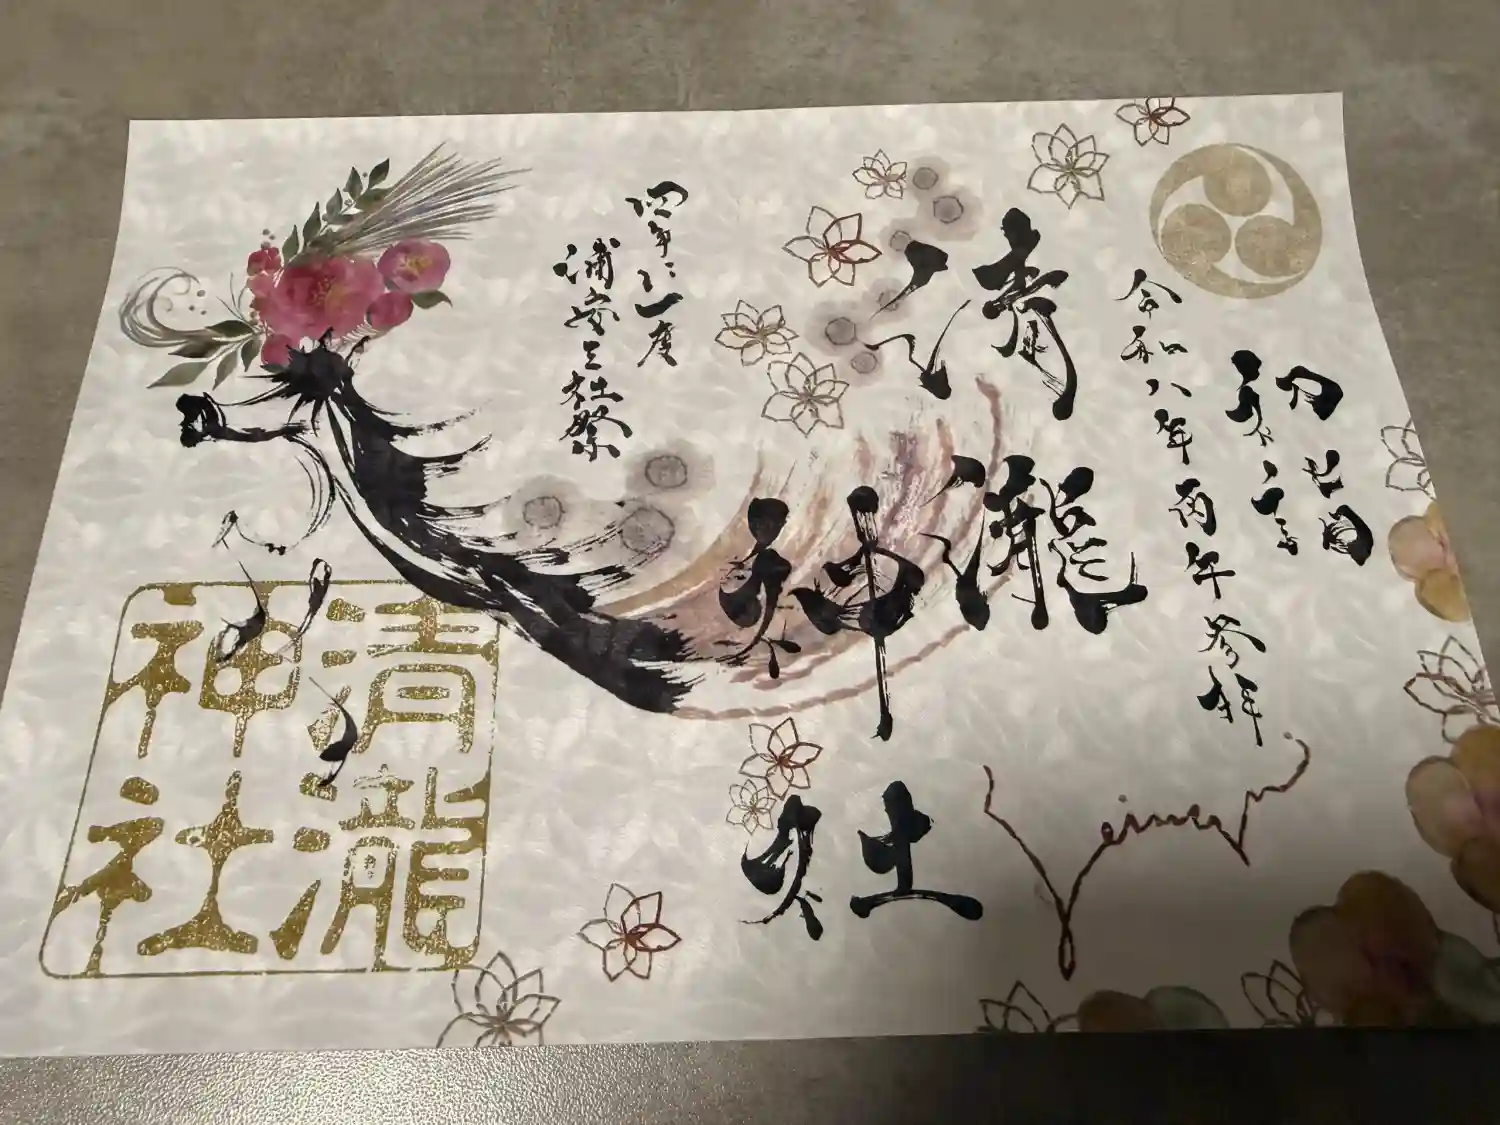 初詣
令和八年丙午参拝
清瀧
神社
四年に一度
浦安三社祭
清瀧
神社